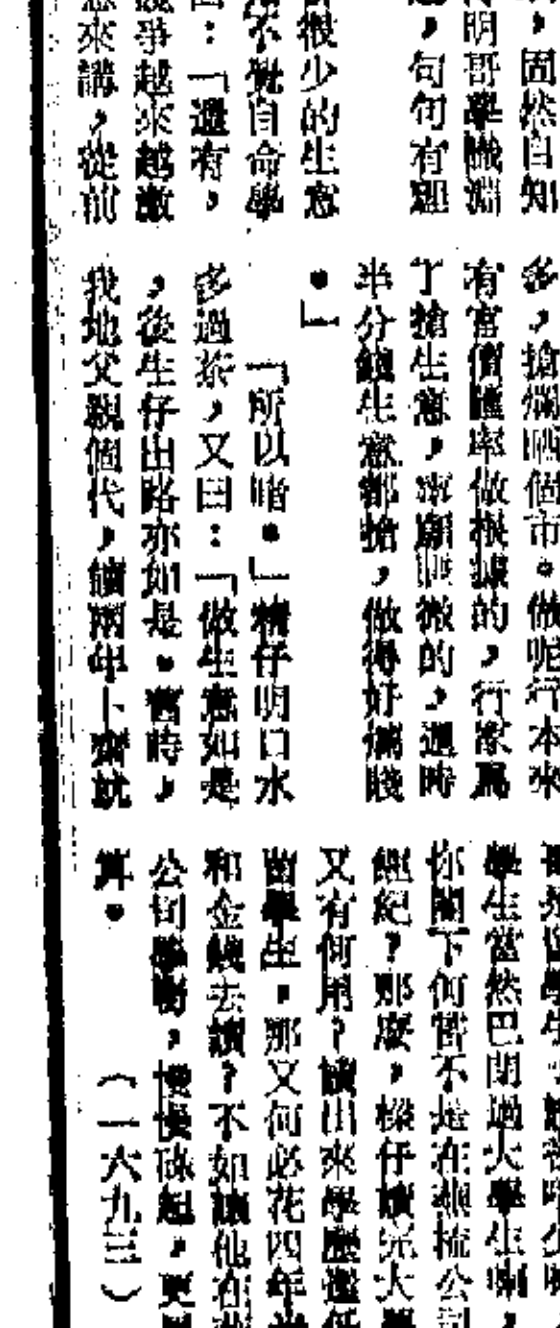 ，固然自知
明哥學識淵
，句句有
很少的生意
不覺自命學
曰：「還有，
爭越來越激
意來講，從前
多，搶爛晒個市。做呢行本來
有官價匯率做根據的，行家為
了搶生意，願微的，過時
半分錢生意都搶，做得好爛賤
。」
「所以啫。」精仔明口水
多過茶，又曰：「做生意如是
，後生仔出路亦如是。舊時，
我地父親個代，讀兩年卜齋就
留學生
學生當然巴閉過大學生喇，
你閣下何嘗不是在燕梳公司
經紀？那麼，樑仔讀完大學
又有何用？讀出來學歷還低
留學生。那又何必花四年
和金錢去讀？不如讓他在
公司學，慢慢起，更
算。 （一六九三）